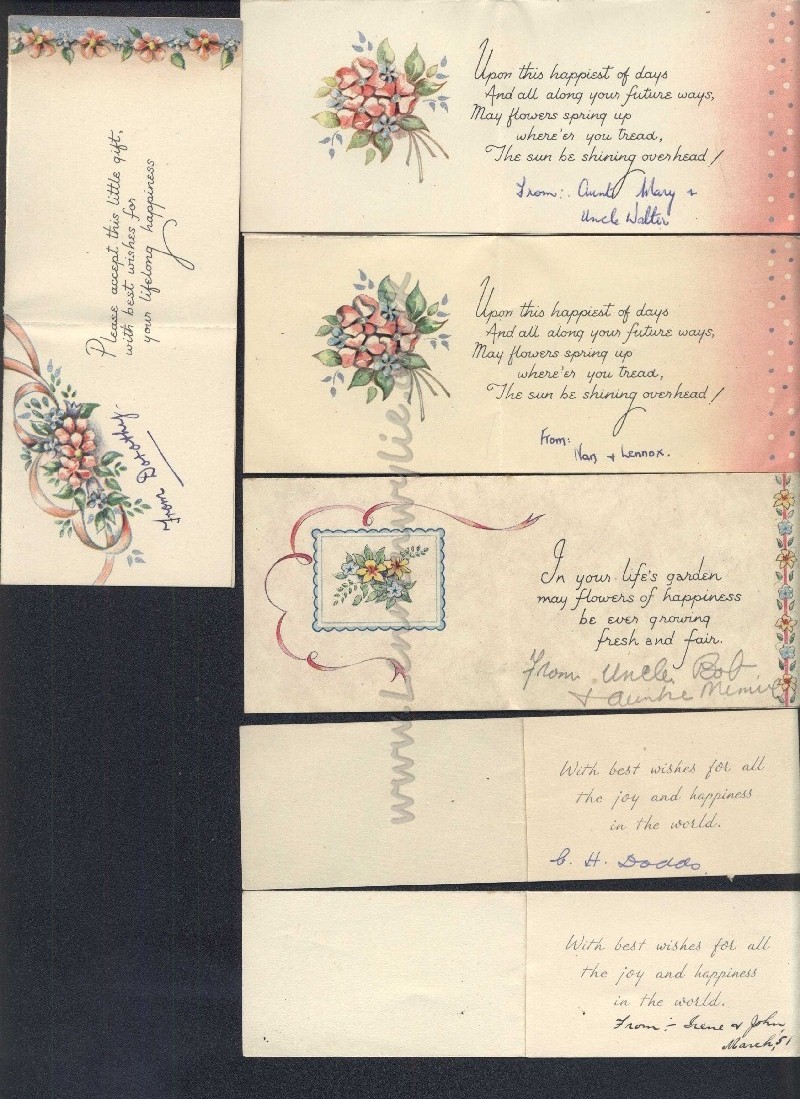 Please accept this little gift,
with best wishes for
your lifelong happiness
From Dorothy.
Upon this happiest of days
And all along your future ways,
May flowers spring up
where'er you tread,
The sun be shining overhead!
From:. Aunty Mary +
Uncle Walter
Upon this happiest of days
And all along your future ways,
May flowers spring up
where'er you tread,
The sun be shining overhead!
From:
Nan + Lennox.
In your life's garden
may flowers of happiness
be ever growing
fresh and fair.
From Uncle Bob
+ Auntie
With best wishes for all
the joy and happiness
in the world.
C. H. Dodds.
With best wishes for all
the joy and happiness
in the world.
From:- Irene & John,
March, 51